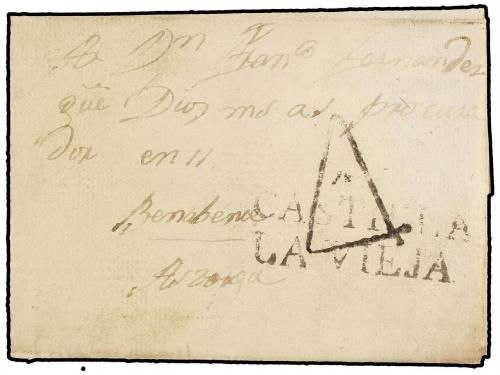 A Dn Franco Fernandez
que Dios ms as procura
dor en
Benabente
Astorga
A
CASTILLA
LA VIEJA